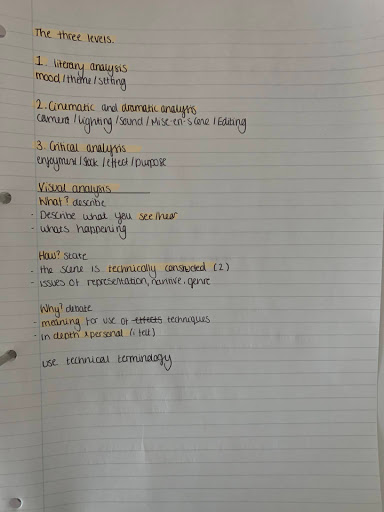 The three levels.
1. literary analysis
mood/theme/setting
2. Cinematic and dramatic analysis
camera/lighting/sound/Mise-en-scene/Editing
3. Critical analysis
enjoyment/ /effect/purpose
Visual analysis
What? describe
- Describe what you see/hear
- whats happening
How? state
- the scene is technically constructed (2)
- issues of representation, narrative, genre
Why? debate
- meaning for use of effects techniques
- in depth & personal
use technical terminology